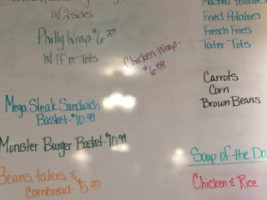 w/ 2 sides
Philly Wrap $6.25
w/ FF or Tots
Chicken Wrap
$6.50
Mega Steak Sandwich
Basket $10.99
Monster Burger Basket $10.99
Beans, taters &
Cornbread $5.25
Mashed Potatoes
Fried Potatoes
French Fries
Tater Tots
Carrots
Corn
Brown Beans
Soup of the Da
Chicken & Rice